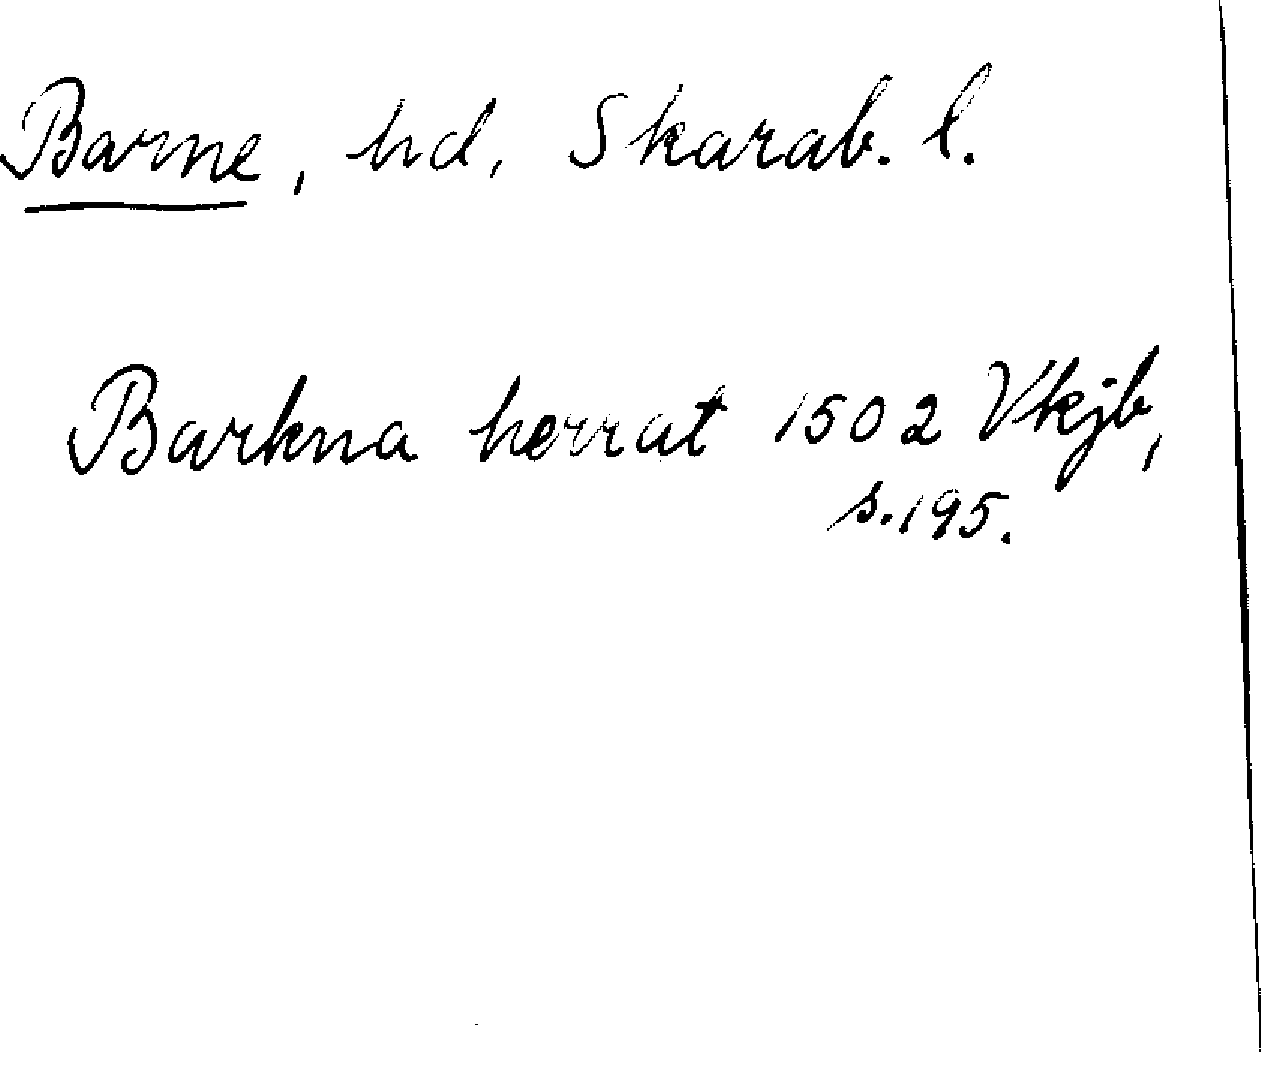 Barne, hd, Skarab. l.
Barkna herrat 1502 Vkjb,
s. 195.